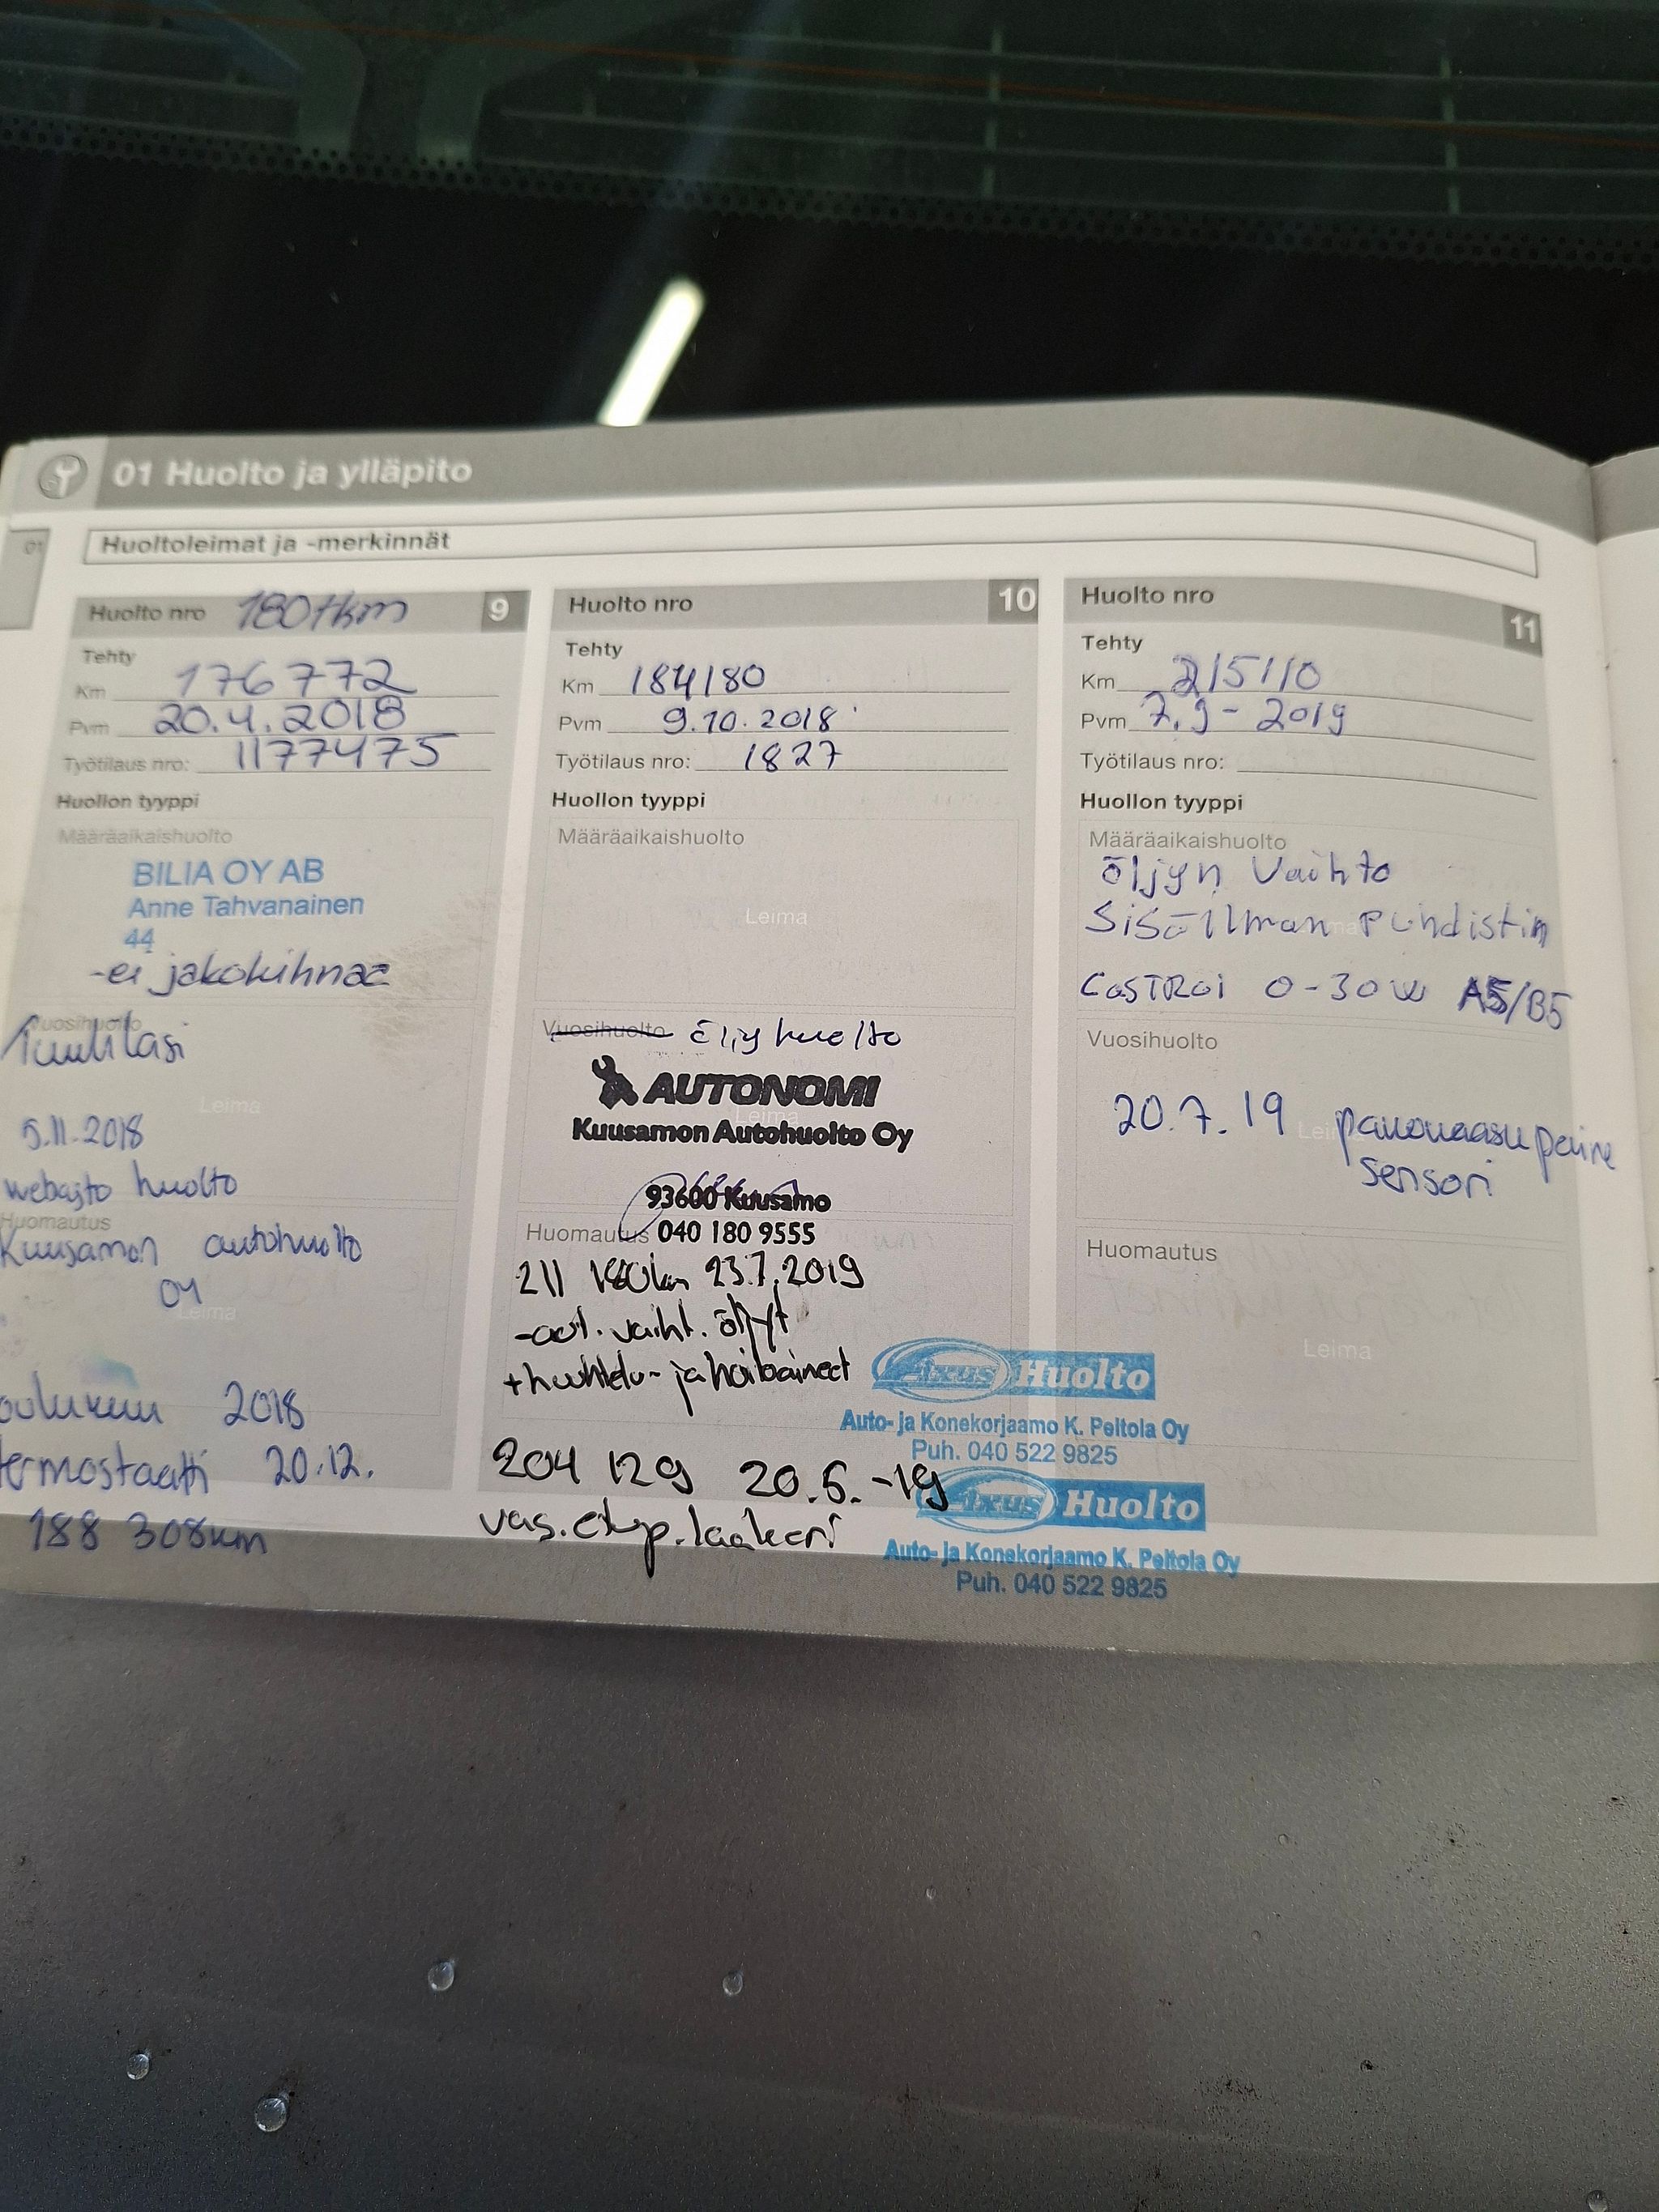 01 Huolto ja ylläpito
01
Huoltoleimat ja -merkinnät
Huolto nro 180tkm 9
Tehty
Km 176 772
Pvm 20.4.2018
Työtilaus nro: 1177475
Huollon tyyppi
Määräaikaishuolto
BILIA OY AB
Anne Tahvanainen
44
-ei jakohihnaa
Vuosihuolto
Tuulilasi
Leima
5.11.2018
webasto huolto
Huomautus
Kuusamon autohuolto
OY
Leima
joulukuu 2018
termostaatti 20.12.
188 308km
Huolto nro 10
Tehty
Km 184180
Pvm 9.10.2018
Työtilaus nro: 1827
Huollon tyyppi
Määräaikaishuolto
Leima
Vuosihuolto öljy huolto
AUTONOMI
Leima
Kuusamon Autohuolto Oy
93600 Kuusamo
Huomautus 040 180 9555
211 180km 23.7.2019
-aut. vaiht. öljyt
+huuhtelu- ja hoitoaineet
Fixus Huolto
Auto- ja Konekorjaamo K. Peltola Oy
Puh. 040 522 9825
204 129 20.5.-19
vas. etup. laakeri
Fixus Huolto
Auto- ja Konekorjaamo K. Peltola Oy
Puh. 040 522 9825
Huolto nro 11
Tehty
Km 215110
Pvm 7.9-2019
Työtilaus nro:
Huollon tyyppi
Määräaikaishuolto
öljyn Vaihto
Sisäilman Puhdistin
CASTROl 0-30W A5/B5
Vuosihuolto
20.7.19 pakokaasu paine
Leima
sensori
Huomautus
Leima